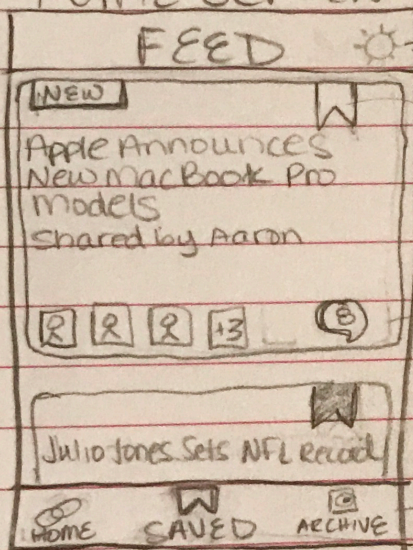 FEED
NEW
Apple Announces
New MacBook Pro
Models
Shared by Aaron
+3
8
Julio Jones Sets NFL Record
HOME SAVED ARCHIVE